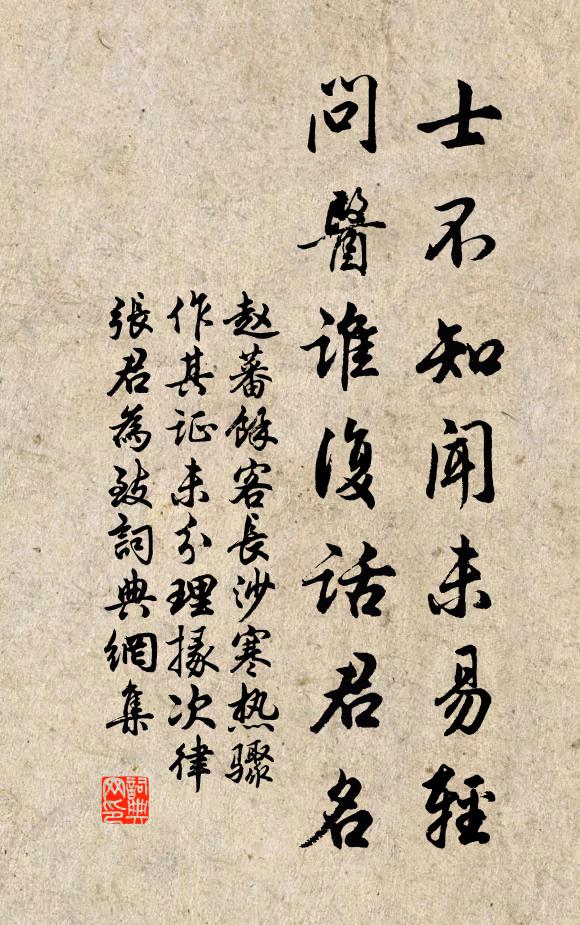 士不知闻未易轻
問醫谁復话君名
赵蕃餘客長沙寒热骤
作其证未分理掾次律
張君為致詞典網集
詞典
网印